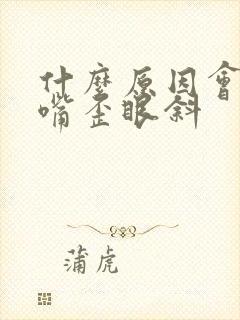 什麼原因會
嘴歪眼斜
蒲虎